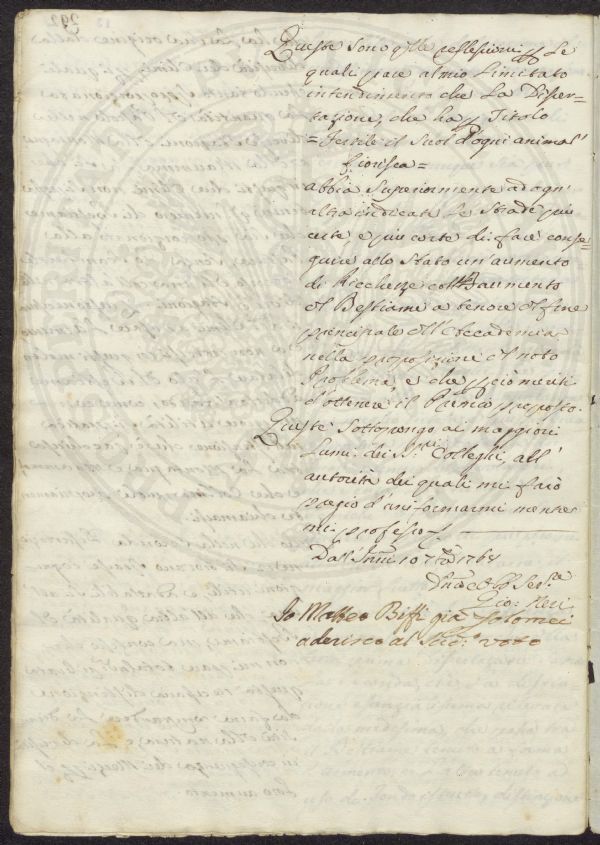 Queste sono q.lle reflessioni p. le
quali pare al mio limitato
intendimento che La Disser=
tazione, che ha p. Titolo
= Fertile il Suol d'ogni animal'
fiorisca =
abbia Superiormente ad ogn'
altra indicate le Strade più
certe, e più corte di fare conse=
guire allo Stato un'aumento
di Ricchezze coll'aumento
del Bestiame a tenore del fine
principale dell'Accademia
nella proposizione del noto
Problema, e che p. ciò meriti
d'ottenere il Premio proposto.
Queste sottopongo ai maggiori
Lumi dei SS.ri Colleghi, all'
autorità dei quali mi farò
pregio d'uniformarmi mentre
mi professo
Dall' 10 7bre 1768
Gio: Neri
Io Matteo Biffi già Tolomei
aderisco al Sud.o voto